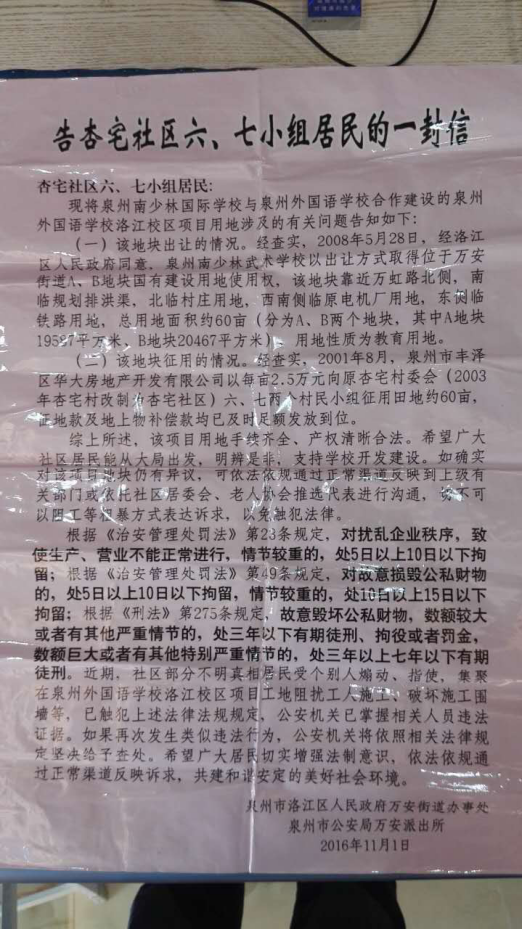 告杏宅社区六、七小组居民的一封信
杏宅社区六、七小组居民:
现将泉州南少林国际学校与泉州外国语学校合作建设的泉州
外国语学校洛江校区项目用地涉及的有关问题告知如下:
(一)该地块出让的情况。经查实,2008年5月28日,经洛江
区人民政府同意,泉州南少林武术学校以出让方式取得位于万安
街道A、B地块国有建设用地使用权,该地块靠近万虹路北侧,南
临规划排洪渠,北临村庄用地,西南侧临原电机厂用地,东侧临
铁路用地,总用地面积约60亩(分为A、B两个地块,其中A地块
19587平方米、B地块20467平方米),用地性质为教育用地。
(二)该地块征用的情况。经查实,2001年8月,泉州市丰泽
区华大房地产开发有限公司以每亩2.5万元向原杏宅村委会(2003
年杏宅村改制为杏宅社区)六、七两个村民小组征用田地约60亩,
征地款及地上物补偿款均已及时足额发放到位。
综上所述,该项目用地手续齐全、产权清晰合法。希望广大
社区居民能从大局出发,明辨是非,支持学校开发建设。如确实
对该项目地块仍有异议,可依法依规通过正常渠道反映到上级有
关部门或依托社区居委会、老人协会推选代表进行沟通,切不可
以阻工等粗暴方式表达诉求,以免触犯法律。
根据《治安管理处罚法》第23条规定,对扰乱企业秩序,致
使生产、营业不能正常进行,情节较重的,处5日以上10日以下拘
留;根据《治安管理处罚法》第49条规定,对故意损毁公私财物
的,处5日以上10日以下拘留,情节较重的,处10日以上15日以下
拘留;根据《刑法》第275条规定,故意毁坏公私财物,数额较大
或者有其他严重情节的,处三年以下有期徒刑、拘役或者罚金,
数额巨大或者有其他特别严重情节的,处三年以上七年以下有期
徒刑。近期,社区部分不明真相居民受个别人煽动、指使,集聚
在泉州外国语学校洛江校区项目工地阻扰工人施工、破坏施工围
墙等,已触犯上述法律法规规定,公安机关已掌握相关人员违法
证据。如果再次发生类似违法行为,公安机关将依照相关法律规
定坚决给予查处。希望广大居民切实增强法制意识,依法依规通
过正常渠道反映诉求,共建和谐安定的美好社会环境。
泉州市洛江区人民政府万安街道办事处
泉州市公安局万安派出所
2016年11月1日